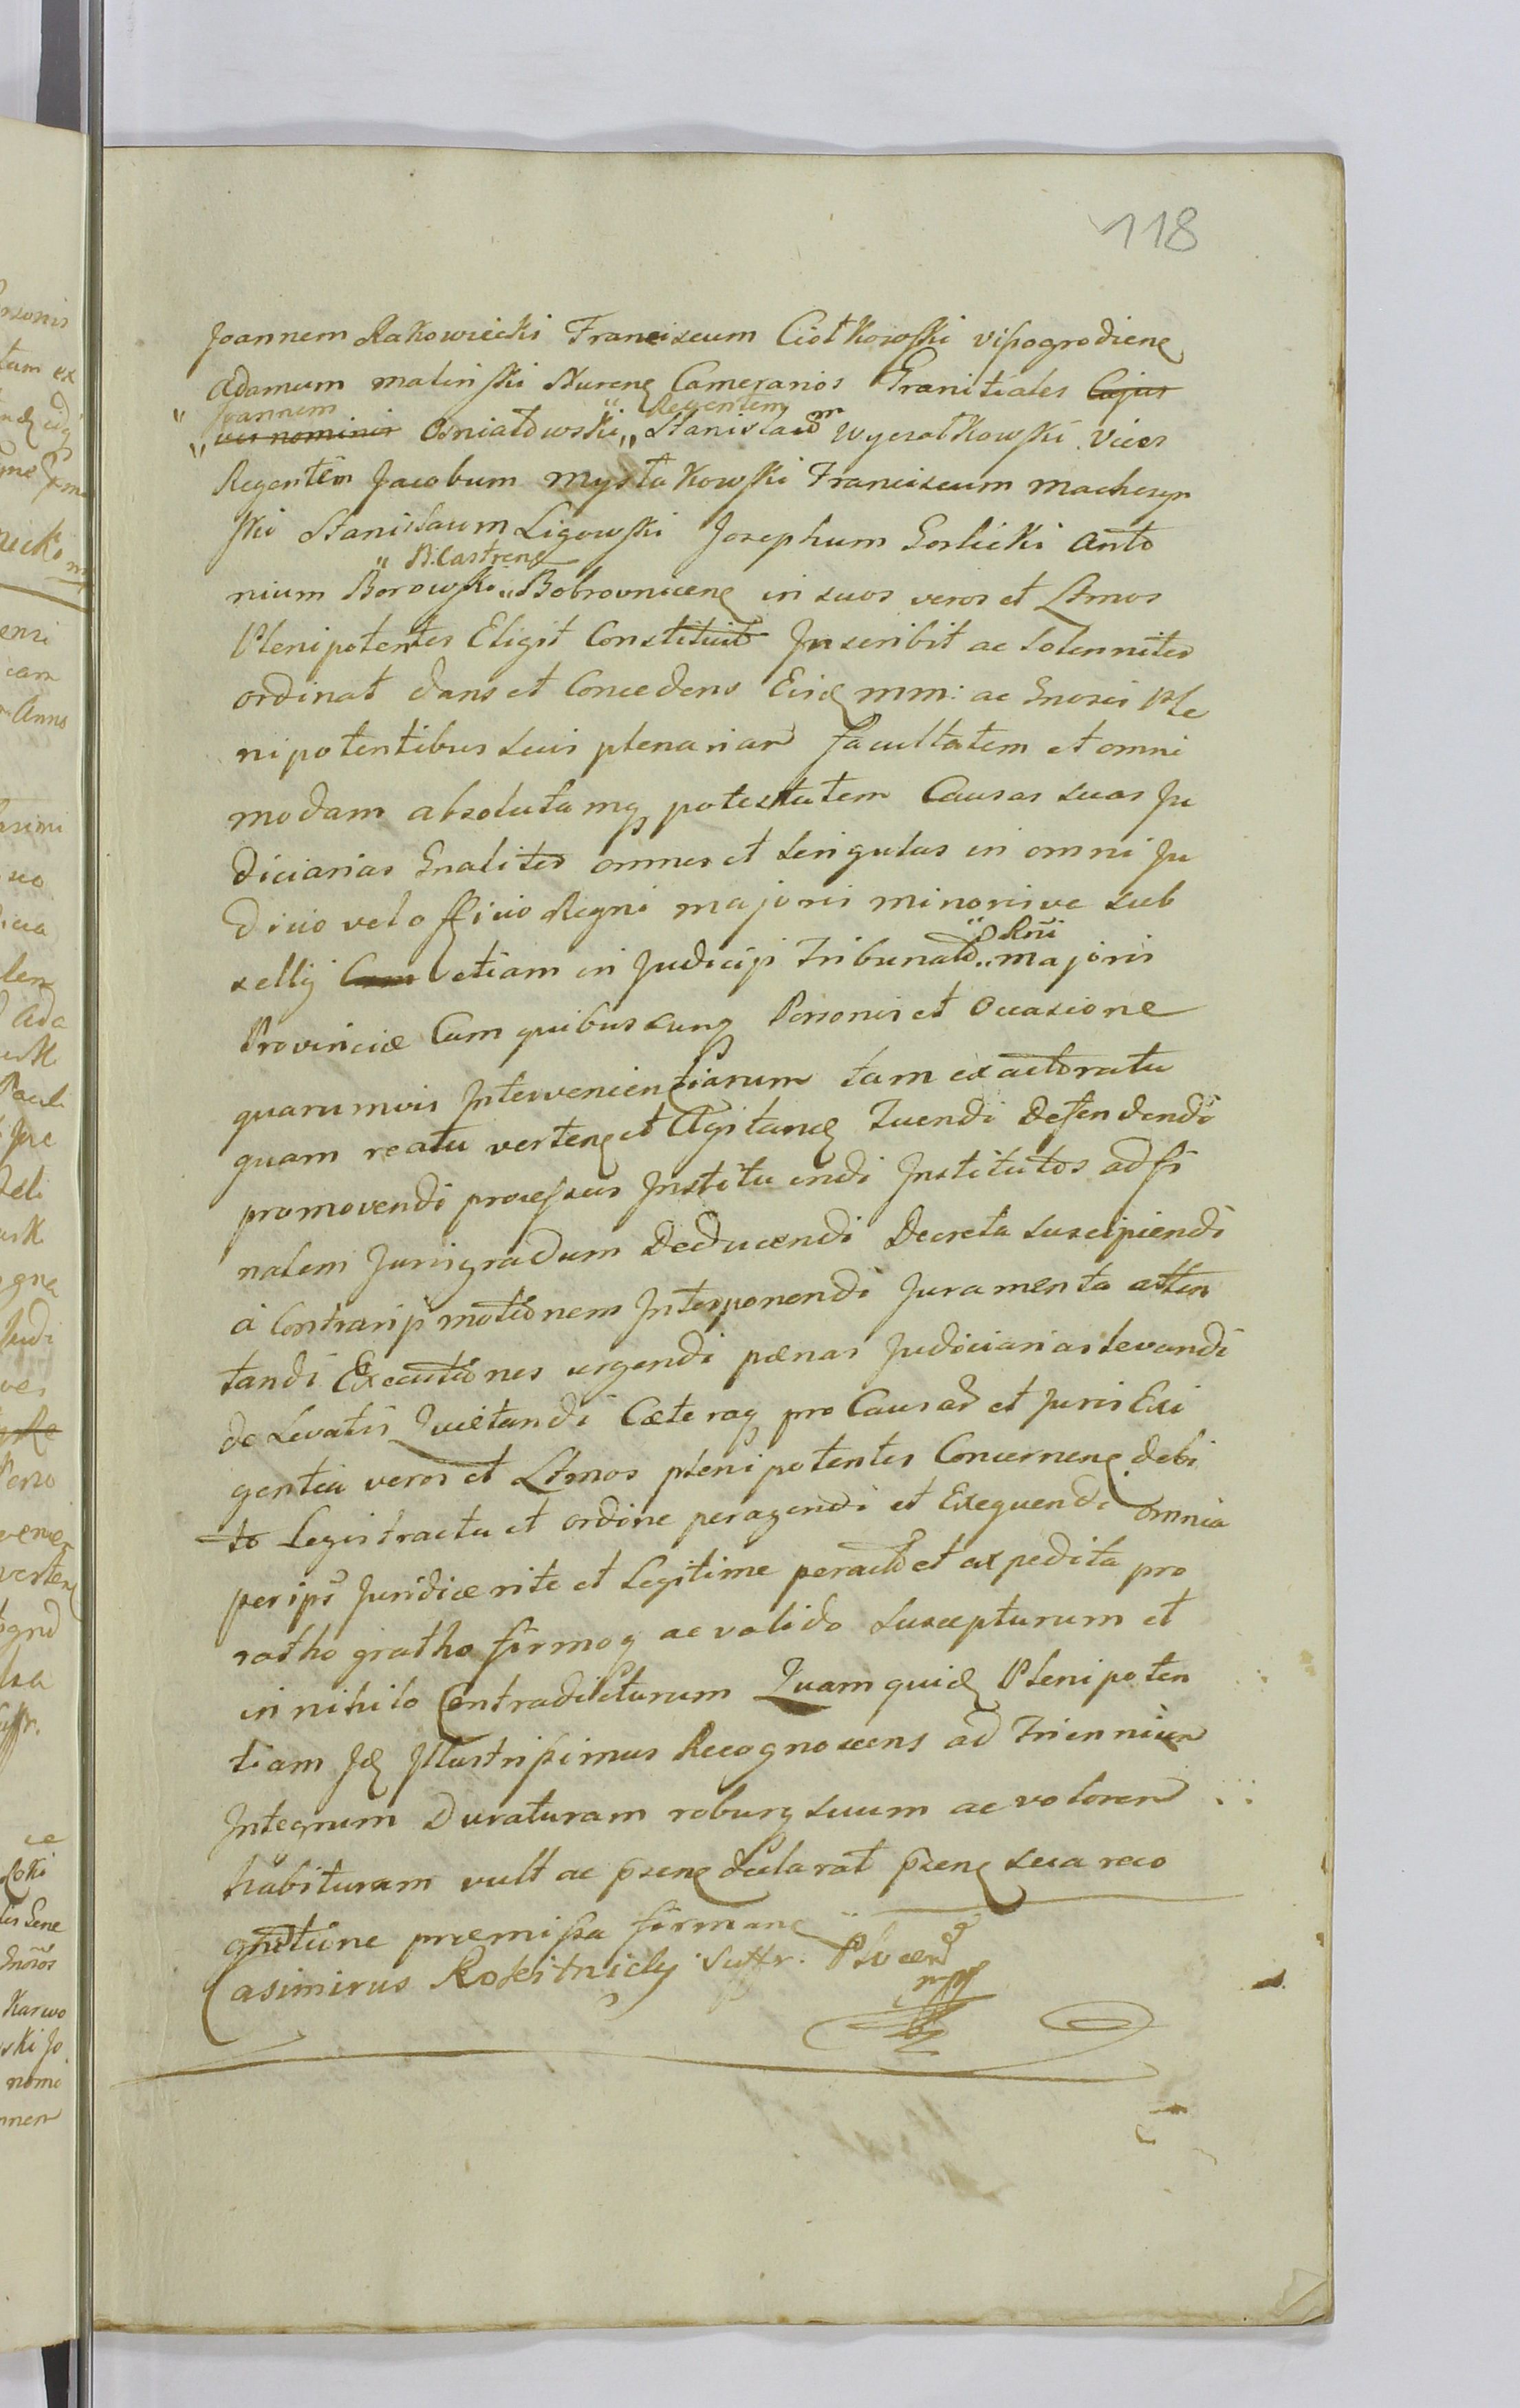 118
Joannem Rakowiecki Franciscum Ciołkowski visogrodieng
Adamum malinski Nureng Cameranos Granitiales Cujus
" Joannem " Regentem
" vis nominis Osniałowski " Stanislaum Wyczałkowski Vices
Regentem Jacobum mystkowski Franciscum machczyn
ski Stanislaum Ligowski Josephum Gorlicki Anto
" B. Castreng
nium Borowski " Bobrovniceng in suos veros et Ltmos
Plenipotentes Eligit Constituit Inscribit ac Solenniter
ordinat dans et Concedens Eisd mm: ac Gnosis Ple
nipotentibus suis plenariam facultatem et omni
modam absolutamq potestatem Causas suas Ju
diciarias Gnaliter omnes et singulas in omni Ju
dicio vel officio Regni majoris minorisve sub
" Rni
sellij Cum etiam in Judicijs Tribunalis " majoris
Provinciæ Cum quibuscunq Personis et Occasione
quarumvis Intervenientiarum tam ex actoratu
quam reatu verteng et Agitand Tuendi defendendi
promovendi processus Instituendi Institutos ad fi
nalem Juris gradum Deducendi Decreta suscipiendi
à Contrarijs motionem Interponendi Juramenta atten
tandi Executiones urgendi pænas Judiciarias levandi
de Levatis Quietandi Cæteraq pro Causar et Juris Exi
gentia veros et Ltmos plenipotentes Concerneng debi
to Legis tractu et ordine peragendi et Exequendi omnia
per ips Juridice rite et Legitime peracta et expedita pro
ratho gratho firmoq ac valido suscepturum et
in nihilo Contradicturum Quam quid Plenipoten
tiam Id Illustrissimus Recognoscens ad Triennium
Integrum Duraturam roburq suum ac valorem
habituram vult ac pseng declarat pseng sua reco
gnitione præmissa firmang
Casimirus Rokitnicky Suffr. Plocen
mpp